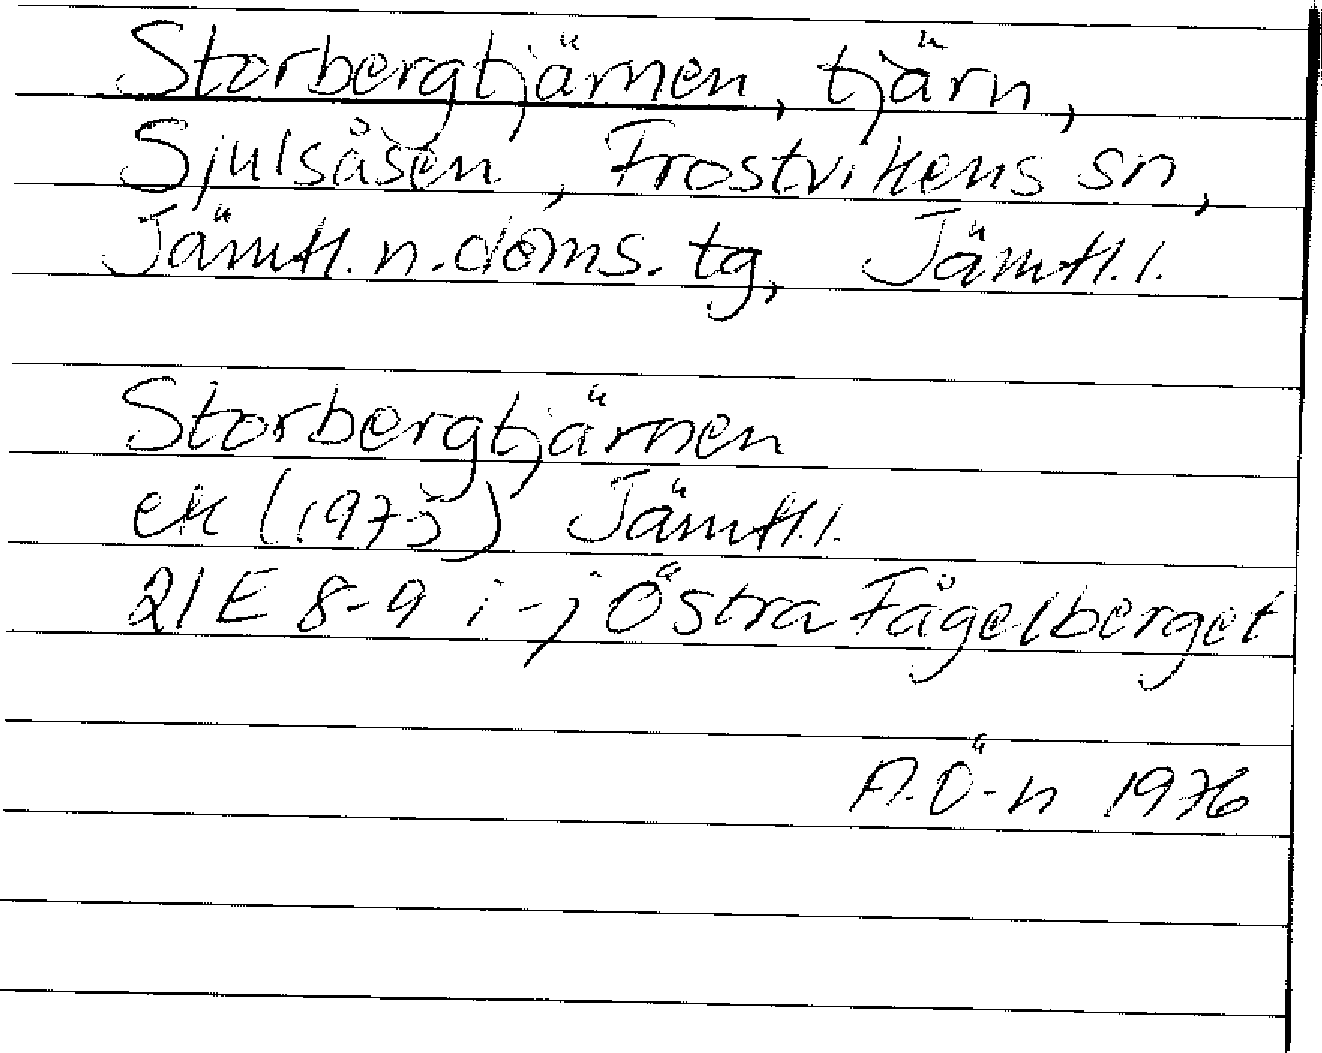 Storbergtjärnen, tjärn,
Sjulsåsen, Frostvikens sn,
Jämtl. n. doms. tg, Jämtl. l.
Storbergtjärnen
ek (1975) Jämtl. l.
21 E 8-9 i-j Östra Fågelberget
A. Ö-n 1976